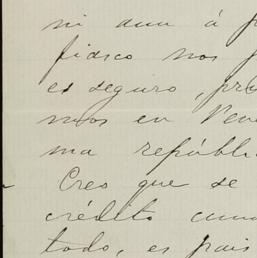 ni aun á
fiasco nos
es seguro, pro
mos en Vene
ma repúbli
Creo que se
crédito
todo, es pais